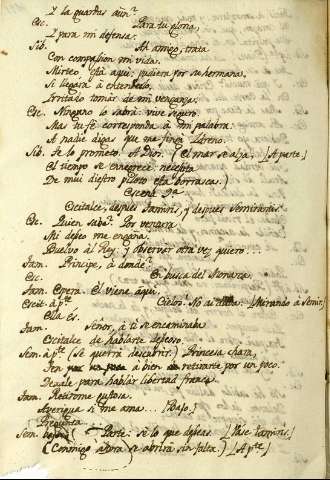 Y la guardas aún?
Cic. Para tu gloria,
Y para mi defensa.
Sib. Ah amigo, trata
Con compasion mi vida.
Mirteo està aqui: pudiera por su hermana,
Si llegara à entenderlo,
Irritado tomar de mi venganza;
Cic. Ninguno lo sabrá: vive seguro.
Mas tu fè corresponda à mi palabra:
A nadie digas que me finjo Idreno.
Sib. Te lo prometo. A Dios. (El mar se alza, [A parte.]
El viento se ennegrece: necesita
De mui diestro piloto esta borrasca.)
Escena 9ª
Escitalce, despues Tamiris, y despues Semiramis
Cic. Quien sabe? Por ventura
Mi deseo me engaña.
Buelvo al Rey, y observar otra vez quiero...
Tam. Principe, à donde?
Cic. En busca del Monarca
Tam. Espera. El viene aqui.
Escit. à pte. Cielos. No ai duda: [Mirando à Semir.]
Ella es.
Tam. Señor, à ti se encaminaba
Escitalce de hablarte deseoso.
Sem. à pte. (Se querrà descubrir.) Princesa chara,
Ten à bien retirarte por un poco.
Dexale para hablar libertad franca.
Tam. Retirome gustosa.
Averigua si me ama... [Bajo.]
Pregunta
Sem. Parte: sè lo que deseas. [Vase Tamiris.]
(Conmigo ahora se abrirà sin falta.) [A pte.]